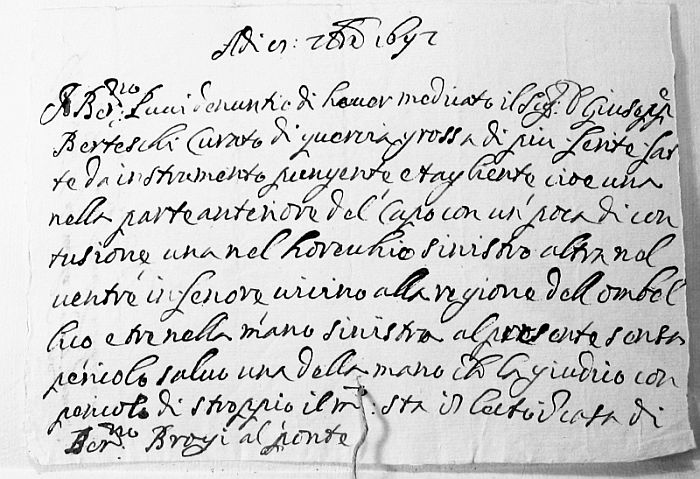 Adi 21: 7bre 1692
Io Berno: Lucci denuntio di haver medicato il Sigr: D Giuseppe
Berteschi Curato di quercia grossa di piu ferite fat
te da instrumento pungente e tagliente cioe una
nella parte anteriore del Capo con un poca di con
tusione una nel horechio sinistro altra nel
ventre inferiore vicino alla regione dell ombel
lico e tre nella mano sinistra al presente senza
pericolo salvo una della mano che la giudico con
pericolo di stroppio il mo: sta in letto in casa di
Berno Brogi al ponte